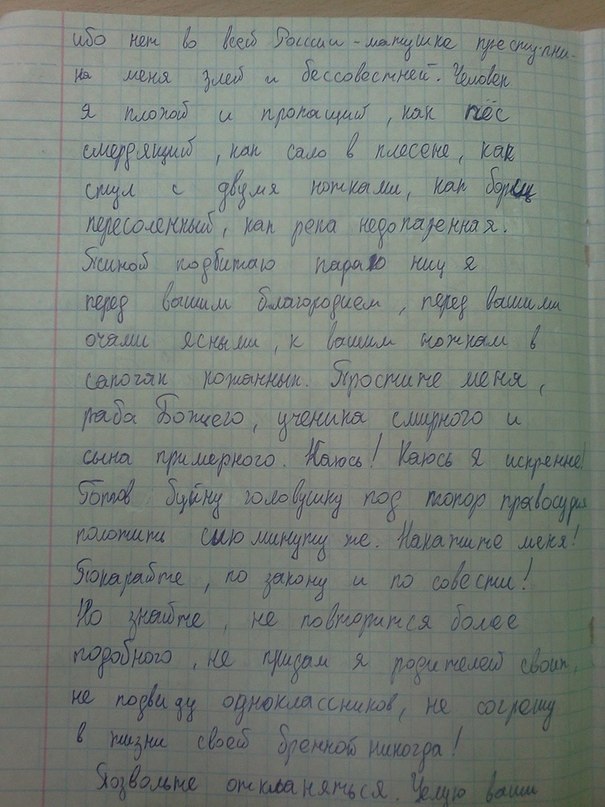 ибо нет во всей России-матушке преступни-
ка меня злей и бессовестней. Человек
я плохой и пропащий, как пёс
смердящий, как сало в плесене, как
стул с двумя ножками, как борщ
пересоленный, как репа недопаренная.
Псиной подбитаю падаю ниц я
перед вашим благородием, перед вашими
очами ясными, к вашим ножкам в
сапогах кожанных. Простите меня,
раба Божьего, ученика смирного и
сына примерного. Каюсь! Каюсь я искренне!
Готов буйну головушку под топор правосудия
положить сию минуту же. Накажите меня!
Покарайте, по закону и по совести!
Но знайте, не повторится более
подобного, не придам я родителей своих,
не подвиду одноклассников, не согрешу
в жизни своей бренной никогда!
Позвольте откланяться. Целую ваши